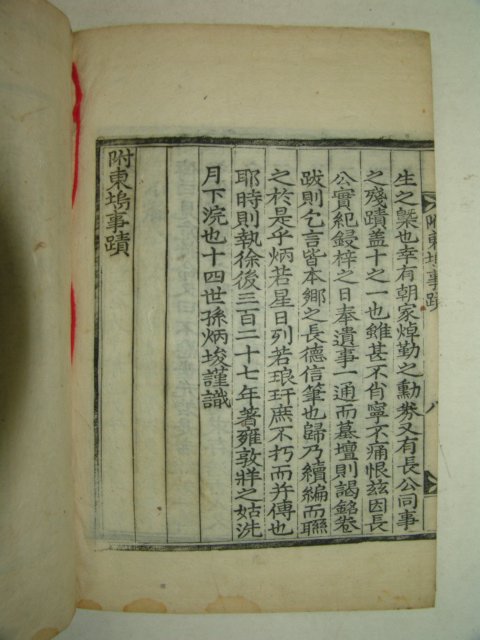 附東塢事蹟 八
生之㮣也幸有朝家焯勤之勳劵又有長公同事
之殘蹟盖十之一也雖甚不肖寧不痛恨玆因長
公實紀鋟梓之日奉遺事一通而墓壇則謁銘卷
跋則乞言皆本鄕之長德信筆也歸乃續編而聯
之於是乎炳若星日列若琅玕庶不朽而幷傳也
耶時則執徐後三百二十七年著雍敦牂之姑洗
月下浣也十四世孫炳埈謹識
附東塢事蹟